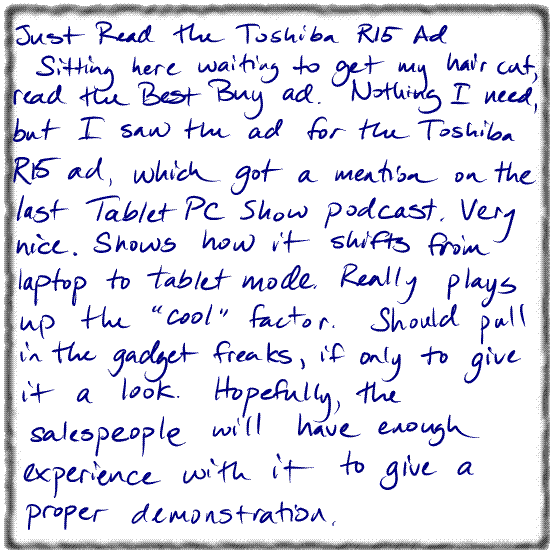 Just Read the Toshiba R15 Ad
Sitting here waiting to get my hair cut,
read the Best Buy ad. Nothing I need,
but I saw the ad for the Toshiba
R15 ad, which got a mention on the
last Tablet PC Show podcast. Very
nice. Shows how it shifts from
laptop to tablet mode. Really plays
up the "cool" factor. Should pull
in the gadget freaks, if only to give
it a look. Hopefully, the
salespeople will have enough
experience with it to give a
proper demonstration.